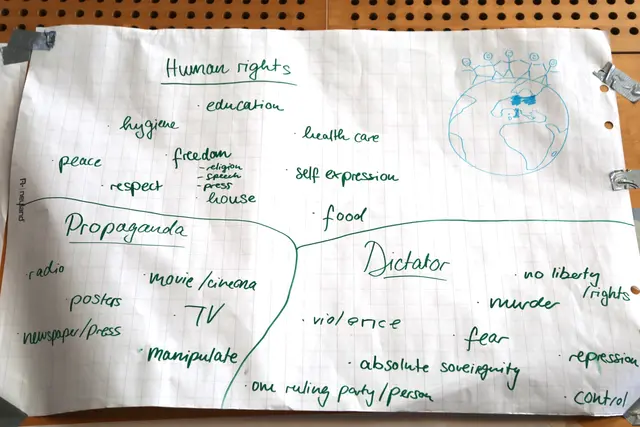 Human rights
· education
· hygiene
· health care
· peace
· freedom
- religion
- speech
- press
· self expression
· respect
· house
· food
Propaganda
· radio
· movie/cinema
· posters
· TV
· newspaper/press
· manipulate
Dictator
· no liberty
/rights
· murder
· violence
· fear
· repression
· absolute sovereignuity
· one ruling party/person
· control